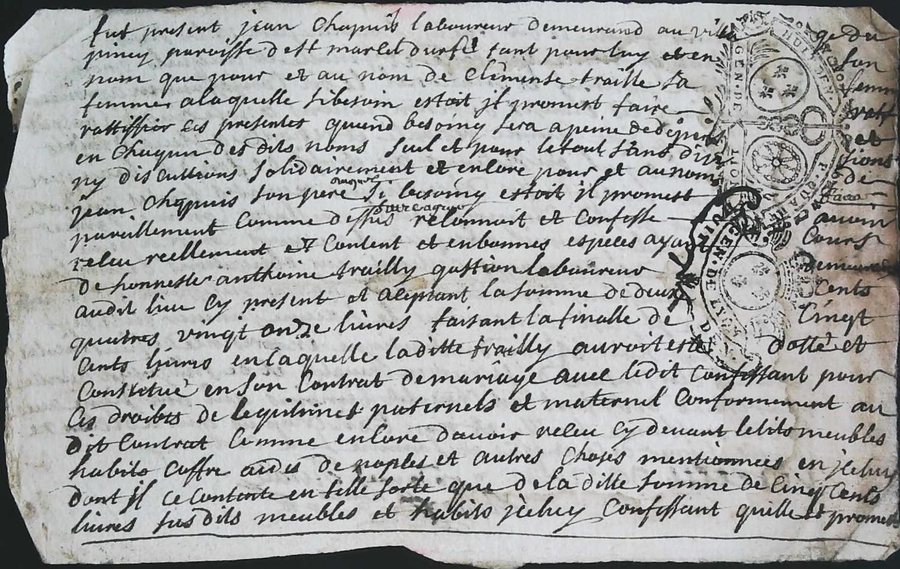 fut present jean Chapuis laboureur demeurand au village du
piney parroisse de st marcel durfé tant pour luy et en son
nom que pour et au nom de Clemense traille sa femme
femme a laquelle si besoin estoit il promest faire
rattiffier ces presentes quand besoing sera a peine de
en chaqun des dits noms seul et pour le tout sans
ny discutions solidairement et encore pour et au nom de
jean Chapuis son pere si besoing estoit il promest
pareillement comme dessus reconnait et confesse avoir
receu reellement et content et en bonnes especes ayant cours
de honneste anthoine trailly laboureur
audit lieu cy present et aceptant la somme de deux cents
quatres vingt onze livres faisant la finalle de cinqt
cents livres en laquelle laditte trailly auroit esté dotté et
constitué en son contrat de mariage avec ledit confessant pour
ces droibts de legitimes paternels et maternel conformement au
dit contrat comme encore d'avoir receu cy devant lebits meubles
habits coffre et autres choses mentionnees en iceluy
dont il ce contante en telle sorte que de la ditte somme de cinq cents
livres susdits meubles et habits iceluy confessant quitte et promet